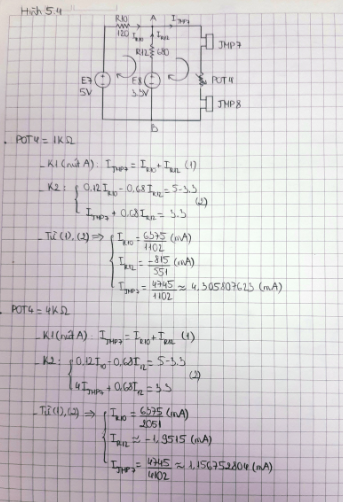 Hình 5.4
R10
120
A
I_JMP7
I_R10
I_R12
R12
680
JMP7
E7
5V
E8
3.3V
POT4
JMP8
B
. POT4 = 1KΩ
- K1 (nút A): I_JMP7 = I_R10 + I_R12 (1)
- K2: { 0.12I_R10 - 0.68I_R12 = 5-3.3
I_JMP7 + 0.68I_R12 = 3.3 (2)
- Từ (1), (2) ⇒ { I_R10 = 6375/1102 (mA)
I_R12 = -815/551 (mA)
I_JMP7 = 4745/1102 ≈ 4,305807623 (mA)
. POT4 = 4KΩ
- K1 (nút A) I_JMP7 = I_R10 + I_R12 (1)
- K2: { 0.12I_10 - 0.68I_12 = 5-3.3
4I_JMP7 + 0.68I_12 = 3.3 (2)
- Từ (1), (2) ⇒ { I_R10 = 6375/2051 (mA)
I_R12 ≈ -1,9515 (mA)
I_JMP7 = 4745/4102 ≈ 1.156752804 (mA)